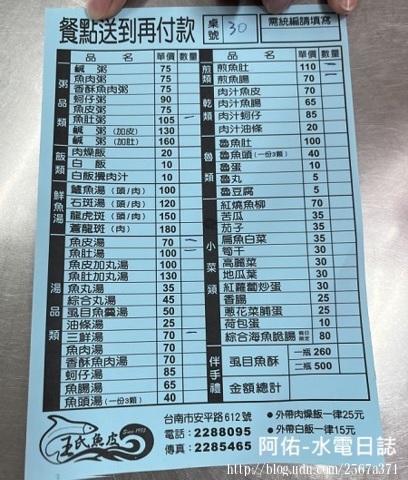 餐點送到再付款 桌號 30 需統編請填寫
品名 單價 數量
粥品類
鹹粥 75
魚肉粥 75
香酥魚肉粥 75
蚵仔粥 90
魚皮粥 75
魚肚粥 105 一
鹹粥(加皮) 130
鹹粥(加肚) 160
飯類
肉燥飯 20
白飯 10
白飯攪肉汁 10
鮮魚湯
鱸魚湯(頭/肉) 100
石斑湯(頭/肉) 120
龍虎斑(頭/肉) 150
蒼龍斑(肉) 180
湯品類
魚皮湯 70 一
魚肚湯 100 一
魚皮加肉湯 100
魚肚加肉湯 130
魚丸湯 35
綜合丸湯 45
虱目魚羹湯 50
油條湯 25
三鮮湯 70 一
魚肉湯 70
香酥魚肉湯 70
蚵仔湯 85
魚腸湯 65
魚頭湯(一份3顆) 40
品名 單價 數量
煎類
煎魚肚 110 一
煎魚腸 70 一
乾類
肉汁魚皮 70
肉汁魚腸 65
肉汁蚵仔 85
肉汁油條 20
魯類
魯魚肚 100
魯魚頭(一份3顆) 40
魯蛋 10
魯丸 5
魯豆腐 5
小菜類
紅燒魚柳 70
苦瓜 35
茄子 35
扁魚白菜 35
筍干 30
高麗菜 30
地瓜葉 30
紅蘿蔔炒蛋 30
香腸 25
蔥花菜脯蛋 25
荷包蛋 10
綜合海魚詭腸 80
伴手禮
虱目魚酥 一瓶 260
二瓶 500
金額總計
王氏魚皮
Since 1953
台南市安平路612號
電話:2288095
傳真:2285465
●外帶肉燥飯一律25元
●外帶白飯一律15元
阿佑-水電日誌
http://blog.udn.com/2567a371